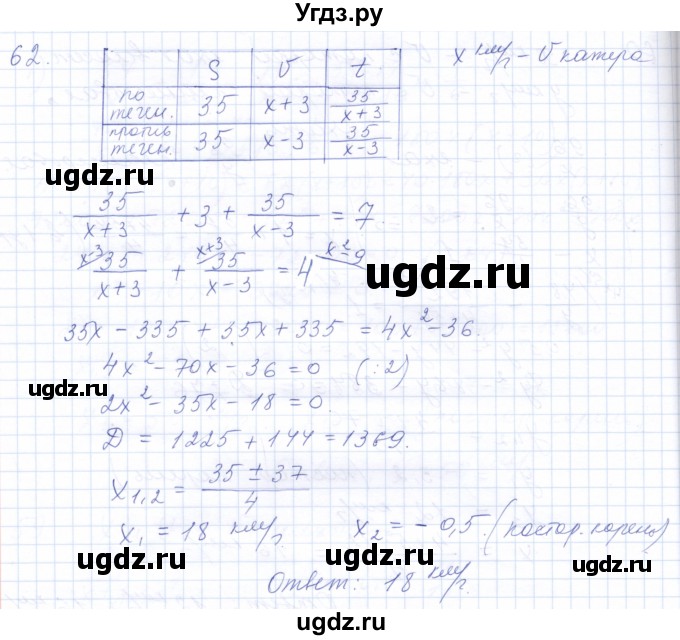 Угдз.ру
62.
S v t
x км/г - v катера
по
теги. 35 x+3 35/(x+3)
против
теген. 35 x-3 35/(x-3)
ugdz.ru ugdz.ru
35/(x+3) + 3 + 35/(x-3) = 7.
x-3 35/(x+3) + x+3 35/(x-3) = 4 x²-9
ugdz.ru ugdz.ru
35x - 335 + 35x + 335 = 4x² - 36.
4x² - 70x - 36 = 0 (:2)
ugdz.ru ugdz.ru
2x² - 35x - 18 = 0.
D = 1225 + 144 = 1369.
x1,2 = (35 ± 37)/4
ugdz.ru
x1 = 18 км/г x2 = -0,5. (постор. корень)
ugdz.ru ugdz.ru ugdz.ru
Ответ: 18 км/г.
ugdz.ru